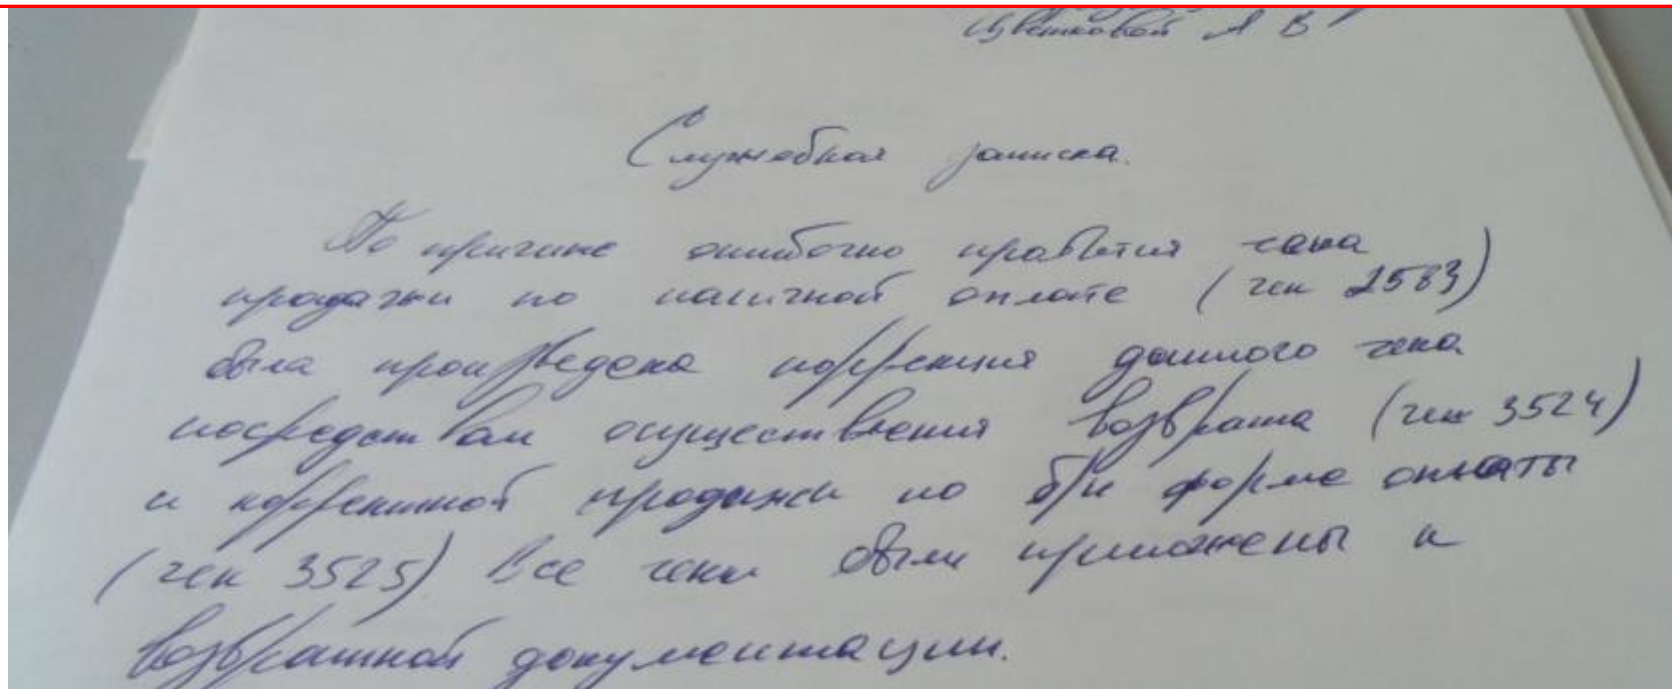 Цветковой А В
Служебная записка.
По причине ошибочно чека
продажи по наличной оплате (чек 2583)
была произведена коррекция данного чека
посредствам осуществления возврата (чек 3524)
и корректной продажи по б/н форме оплаты
(чек 3525) Все чеки были приложены к
возвратной документации.